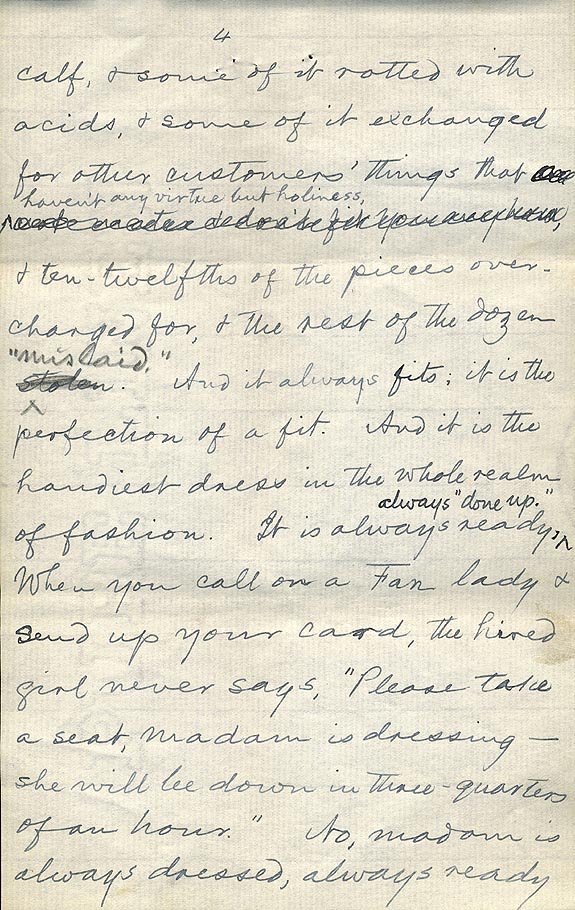 4
calf, & some of it rotted with
acids, & some of it exchanged
for other customers' things that
haven't any virtue but holiness,
& ten-twelfths of the pieces over-
charged for, & the rest of the dozen
"mislaid."
stolen. And it always fits; it is the
perfection of a fit. And it is the
handiest dress in the whole realm
always "done up."
of fashion. It is always ready,
When you call on a Fan lady &
send up your card, the hired
girl never says, "Please take
a seat, madam is dressing —
she will be down in three-quarters
of an hour." No, madam is
always dressed, always ready